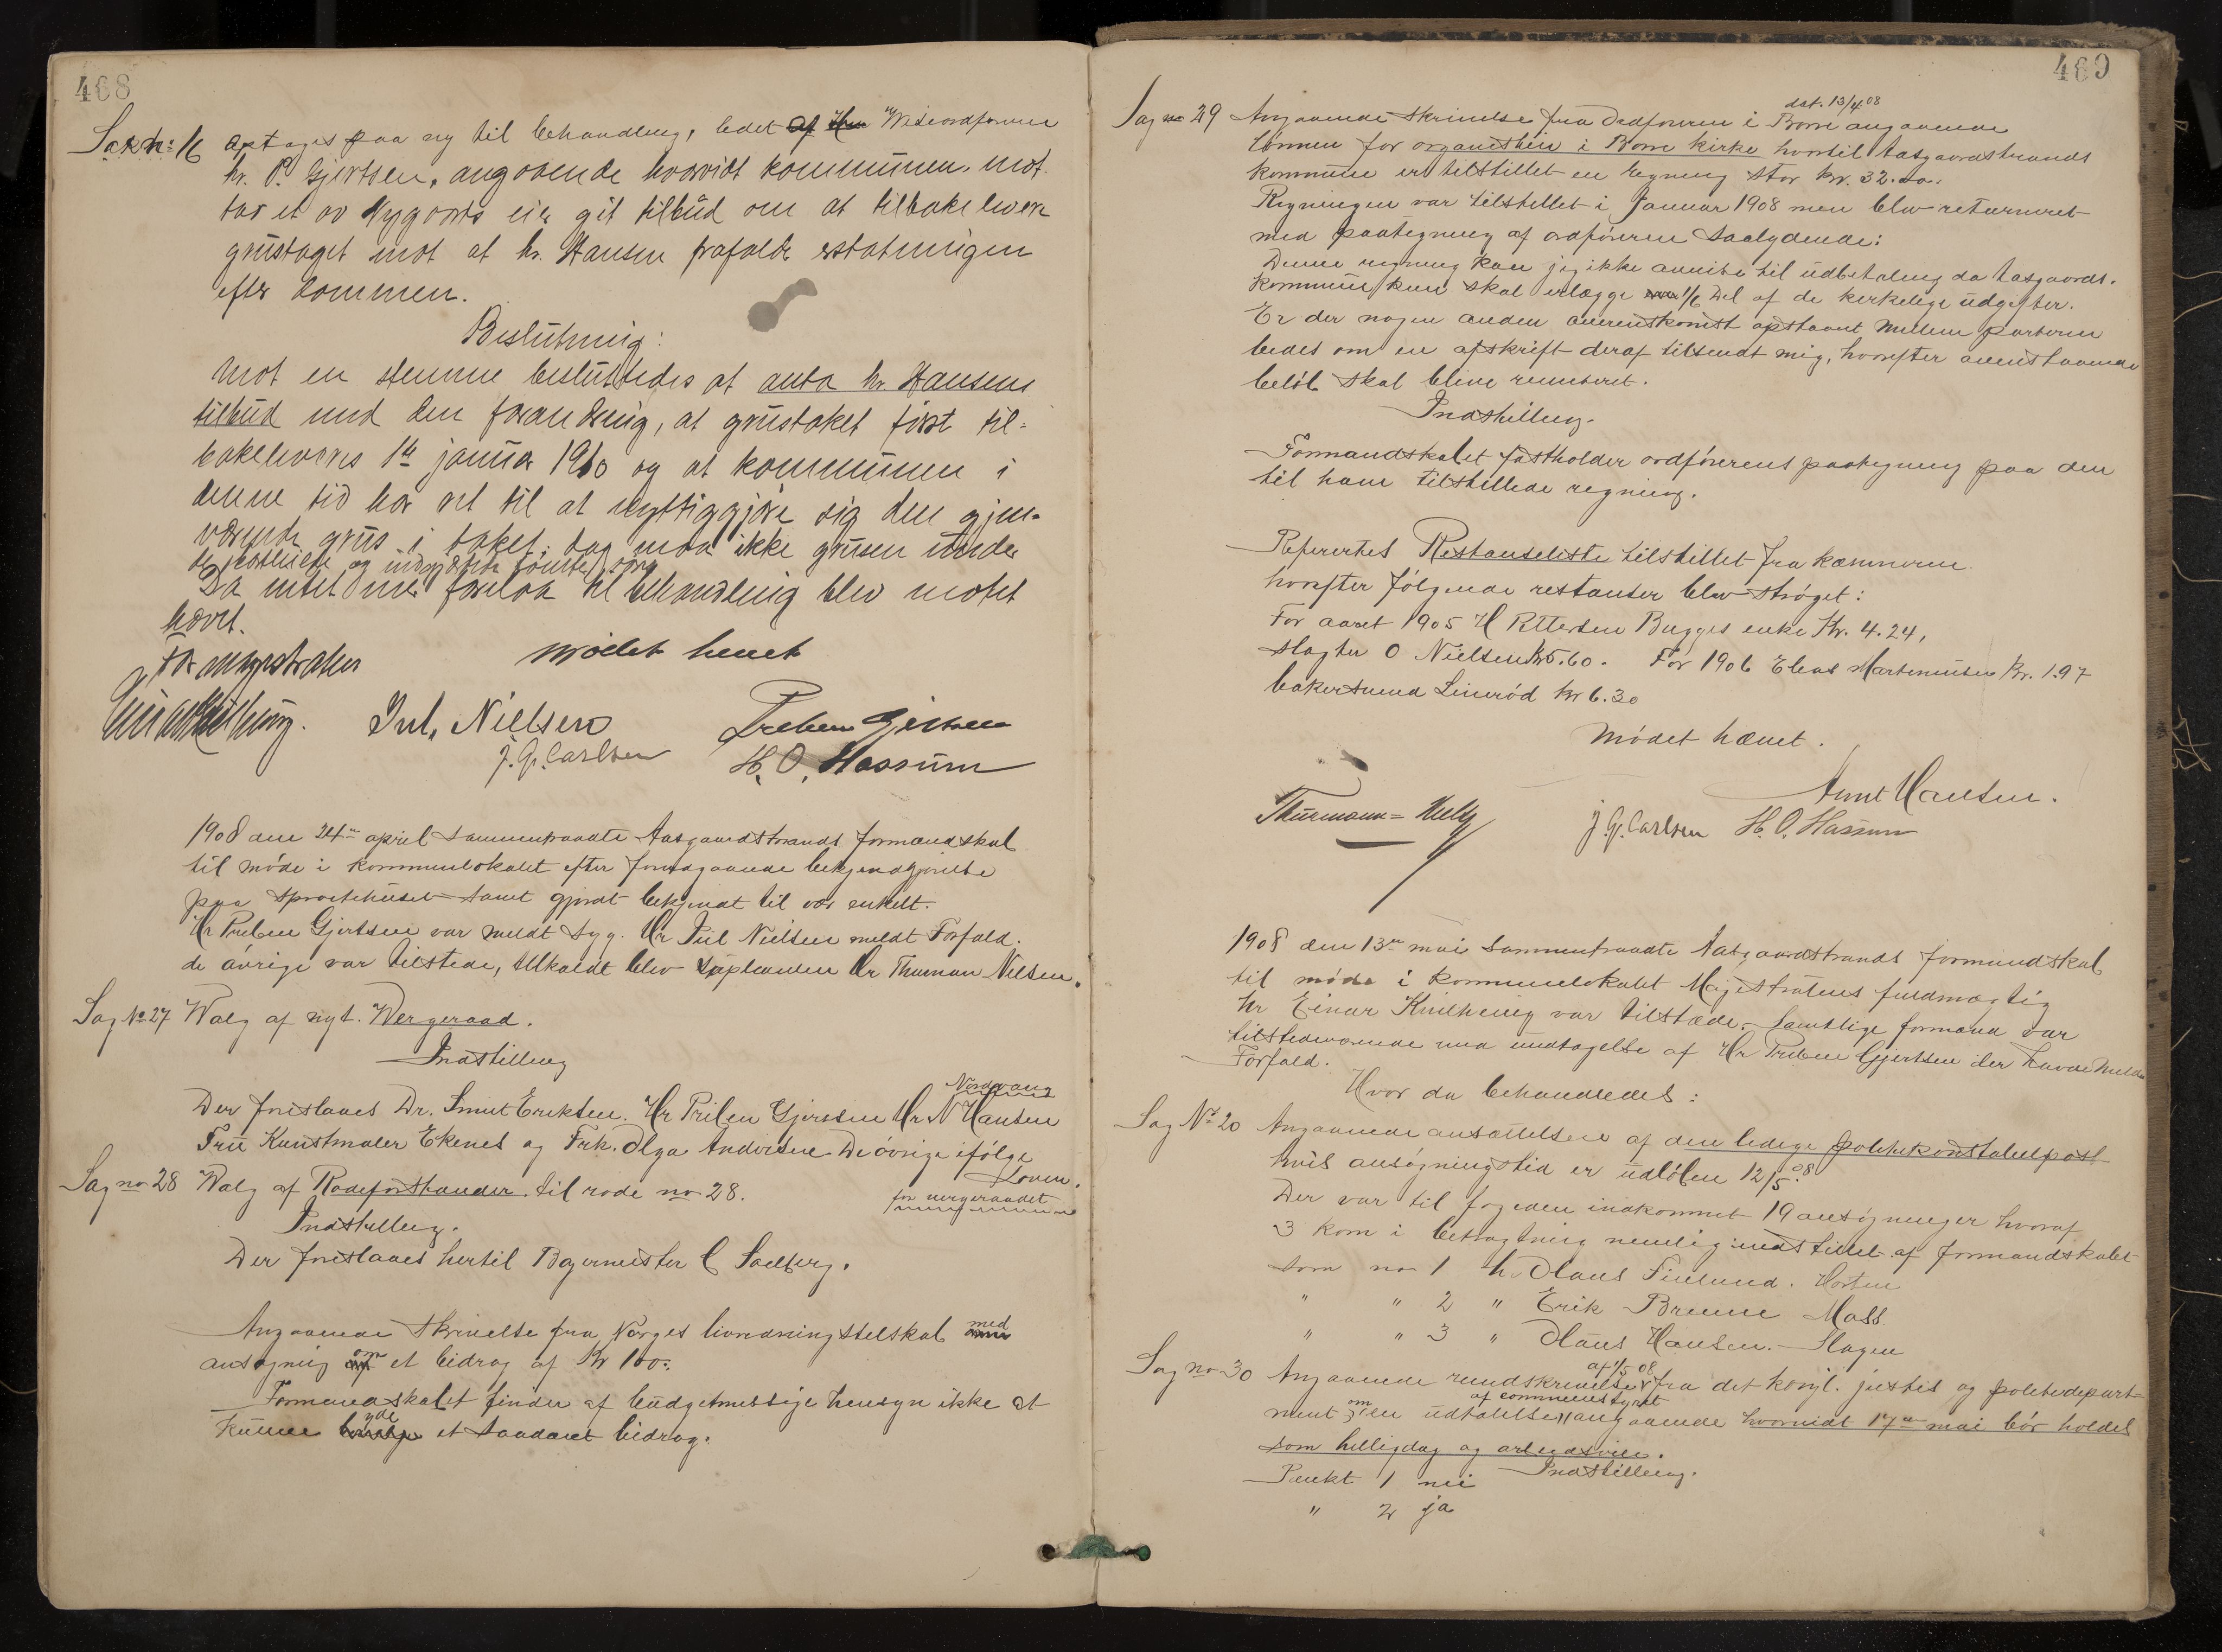 468
Sak n: 16 optages paa ny til behandling, ledet af Viseordføreren
hr. P. Gjertsen, angaaende hvorvidt kommunen mot
tar et av Nygaards eier git tilbud om at tilbakelevere
grustaget mot at hr. Hansen frafalder erstatningen
efter dommen.
Beslutning:
Mot en stemme besluttedes at anta hr. Hansens
tilbud med den forandring, at grustaket først til-
bakeleveres 1ste januar 1910 og at kommunen i
denne tid har ret til at nyttiggjøre sig den gjen-
værende grus i taket; dog maa ikke grusen under
Da intet mer forelaa til behandling blev møtet
hævet.
mødet hævet
for magistraten
Jul. Nielsen
Preben Gjertsen
J. G. Carlsen
H. O. Hassum
1908 den 24de april sammentraadte Aasgaardstrands formandskab
til møde i kommunelokalet efter forudgaaende bekjendtgjørelse
paa sprøitehuset samt gjordt bekjendt til vær enkelt.
Hr Preben Gjertsen var meldt syg. Hr Jul Nielsen meldt Forfald.
de øvrige var tilstede, tilkaldt blev suplenten Hr Thurman Nelsen.
Sag No 27 Valg af nyt Vergeraad.
Indstilling
Nordvang
Der foreslaaes Dr. Smit Eriksen. Hr Preben Gjertsen Hr N Hansen
Fru Kunstmaler Ekenes og Frk. Olga Andersen De øvrige ifølge
Loven.
Sag no 28 Valg af Rodeforstander til rode no 28.
for vergeraadet
Indstilling.
Der foreslaaes hertil Bagermester C Solberg.
Angaaende Skrivelse fra Norges livredningsselskab med
ansøgning om et bidrag af Kr 100:
Formandskabet finder af budgetmessige hensyn ikke at
kunne yde et saadant bidrag.
469
dat. 13/4 08
Sag no 29 Angaaende Skrivelse fra Ordføreren i Borre angaaende
lønnen for organisten i Borre kirke hvortil Aasgaardstrands
kommune er tilstillet en regning stor kr. 32.00.
Regningen var tilstillet i Januar 1908 men blev returneret
med paategning af ordføreren saalydende:
Denne regning kan jeg ikke anvise til udbetaling da Aasgaards.
kommune kun skal erlægge 1/6 Del af de kirkelige udgifter.
Er der nogen anden overenskomst opstaaet mellem parterne
bedes om en afskrift deraf tilsendt mig, hvorefter ovenstaaende
beløb skal blive remiteret.
Indstilling.
Formandskabet fastholder ordførerens paategning paa den
til ham tilstillede regning.
Referertes Restanseliste tilstillet fra kæmneren
hvorefter følgende restanser blev strøget:
For aaret 1905 H Pettersen Bugges enke Kr. 4.24,
slagter O Nielsen Kr 5.60. For 1906 Elias Martinussen Kr. 1.97
bakersvend Linrød kr 6.30
Mødet hævet.
Arnt Hansen.
Thurmann-Nielsen
J. G. Carlsen H. O. Hassum
1908 den 13de mai sammentraadte Aasgaardstrands formandskab
til møde i kommunelokalet Magistratens fuldmægtig
Hr Einar Kvilhaug var tilstæde. Samtlige formænd var
tilstedeværende med undtagelse af Hr Preben Gjertsen der havde meldt
Forfald.
Hvor da behandledes:
Sag No 20 Angaaende ansættelsen af den ledige politikonstabelpost
hvis ansøgningstid er udløben 12/5 08.
Der var til fogeden indkommet 19 ansøgninger hvoraf
3 kom i betragtning nemlig indstillet af formandskabet
som no 1 hr Olaus Finlund. Horten
" " 2 " Erik Brenne Moss
" " 3 " Olaus Hansen. Slagen
af 1/5 08
Sag no 30 Angaaende rundskrivelse fra det kongl. justis og politidepart-
af communestyret
ment om en udtalelse angaaende hvorvidt 17de mai bør holdes
som helligdag og arbeidsfri.
Indstilling.
Punkt 1 nei
" 2 ja